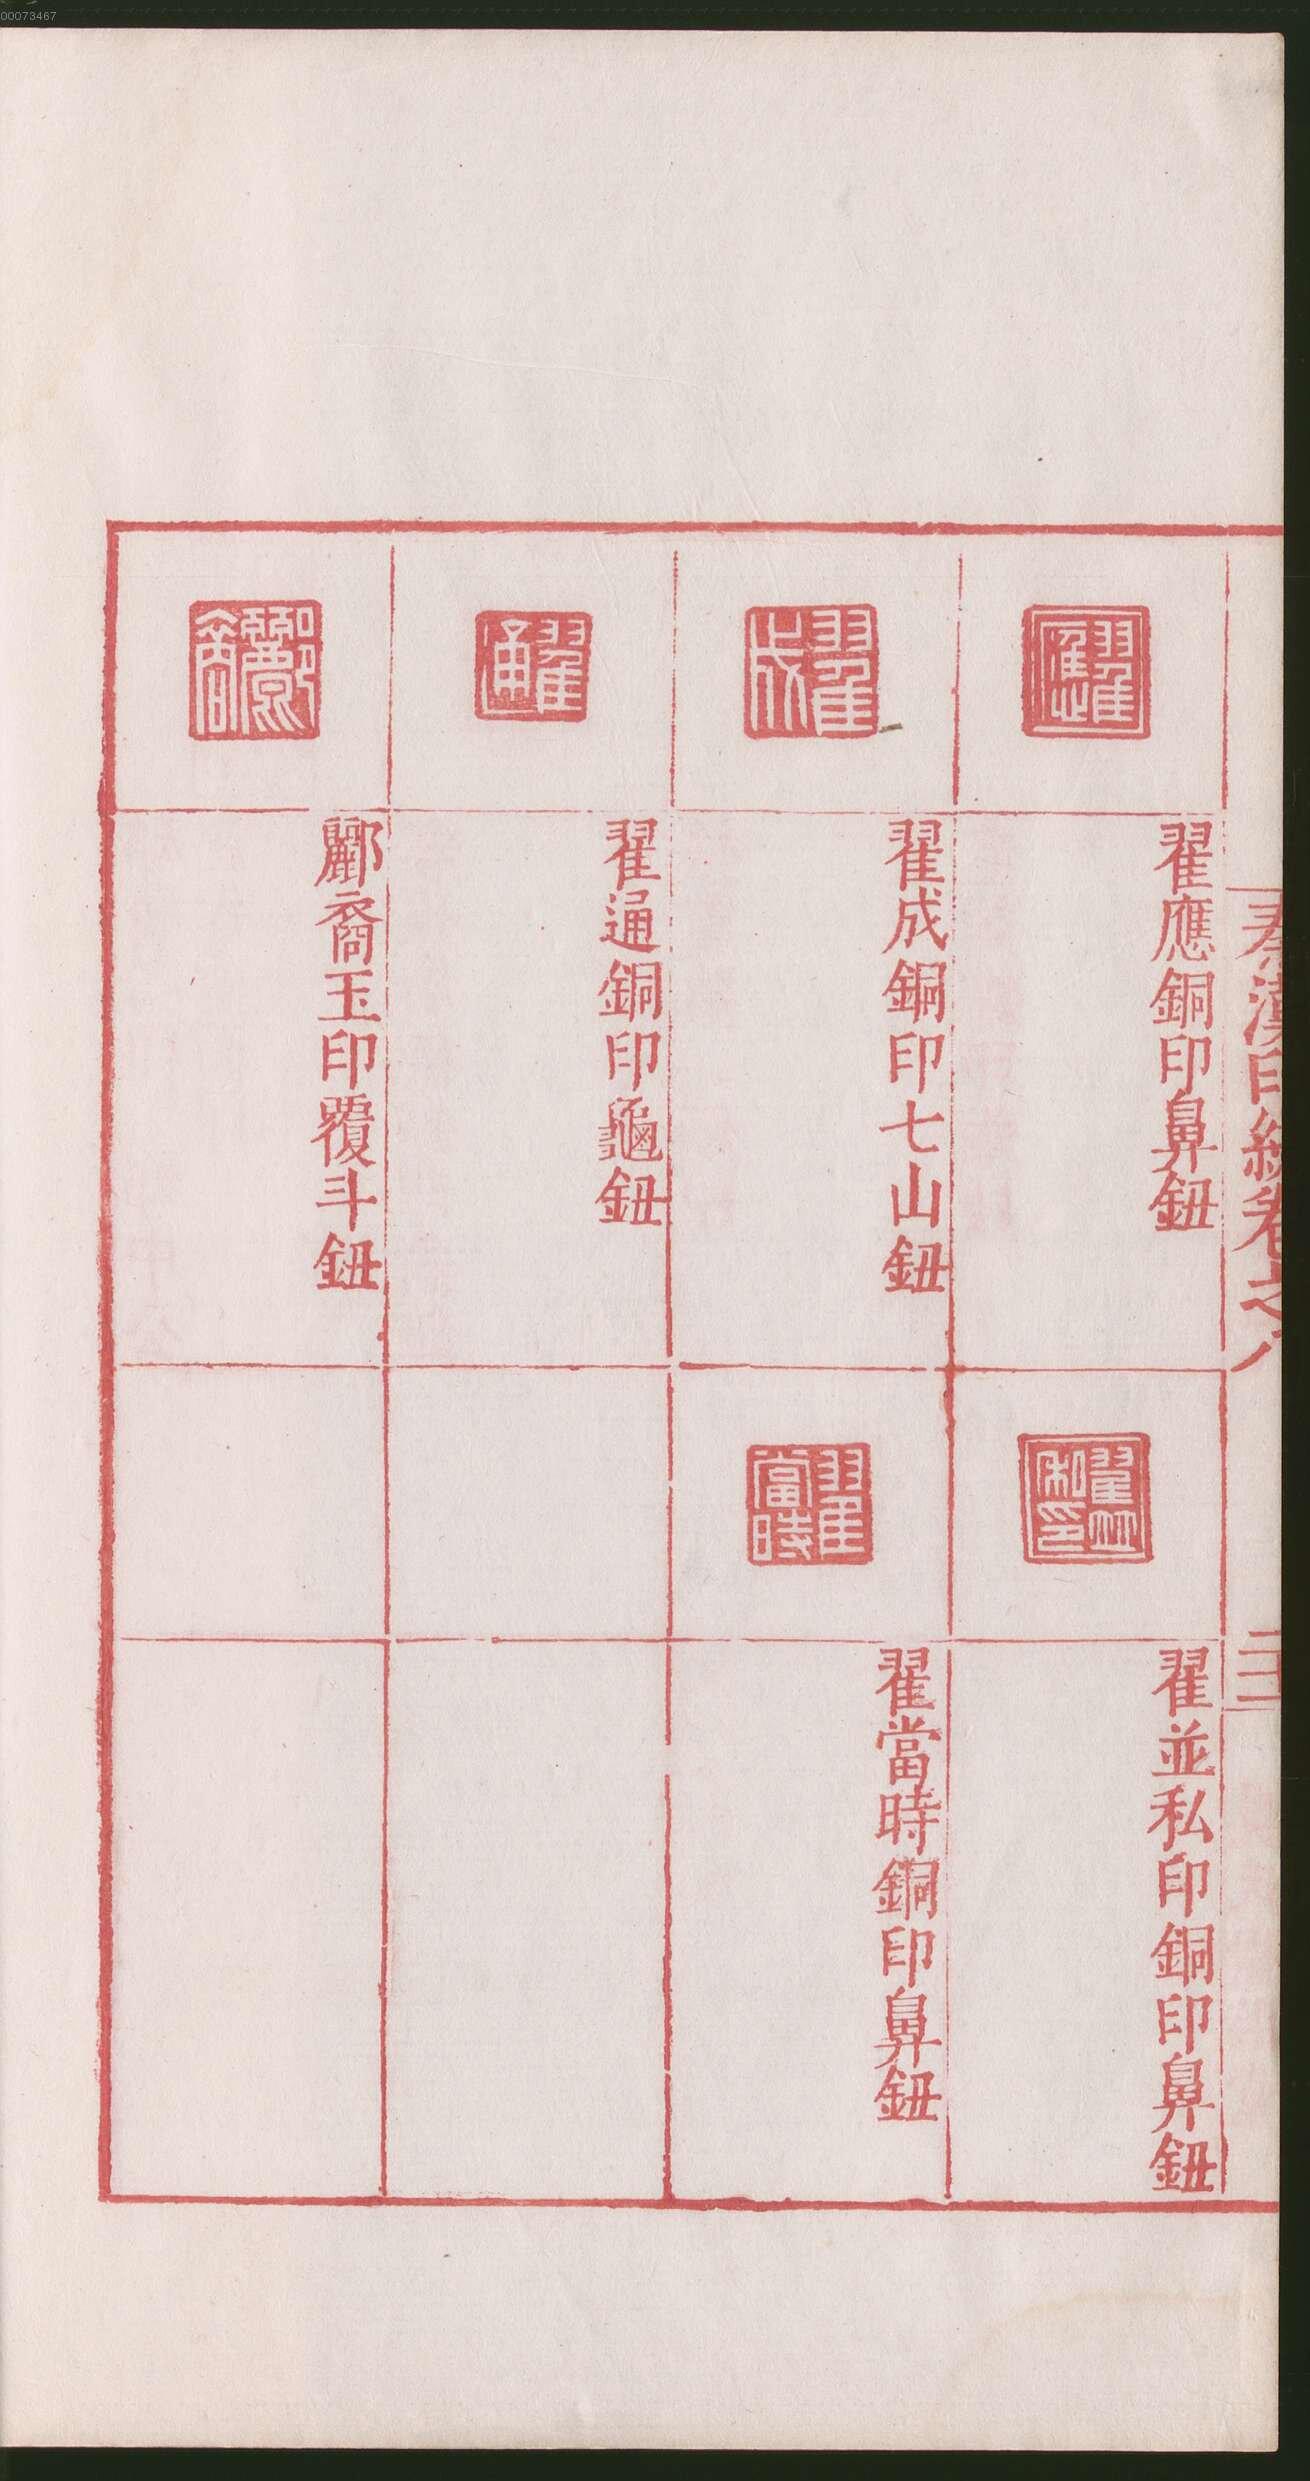 00073467
秦漢印統卷之八
二十一
翟應
翟應銅印鼻鈕
翟並私印
翟並私印銅印鼻鈕
翟成
翟成銅印七山鈕
翟當時
翟當時銅印鼻鈕
翟通
翟通銅印龜鈕
酈裔
酈裔玉印覆斗鈕